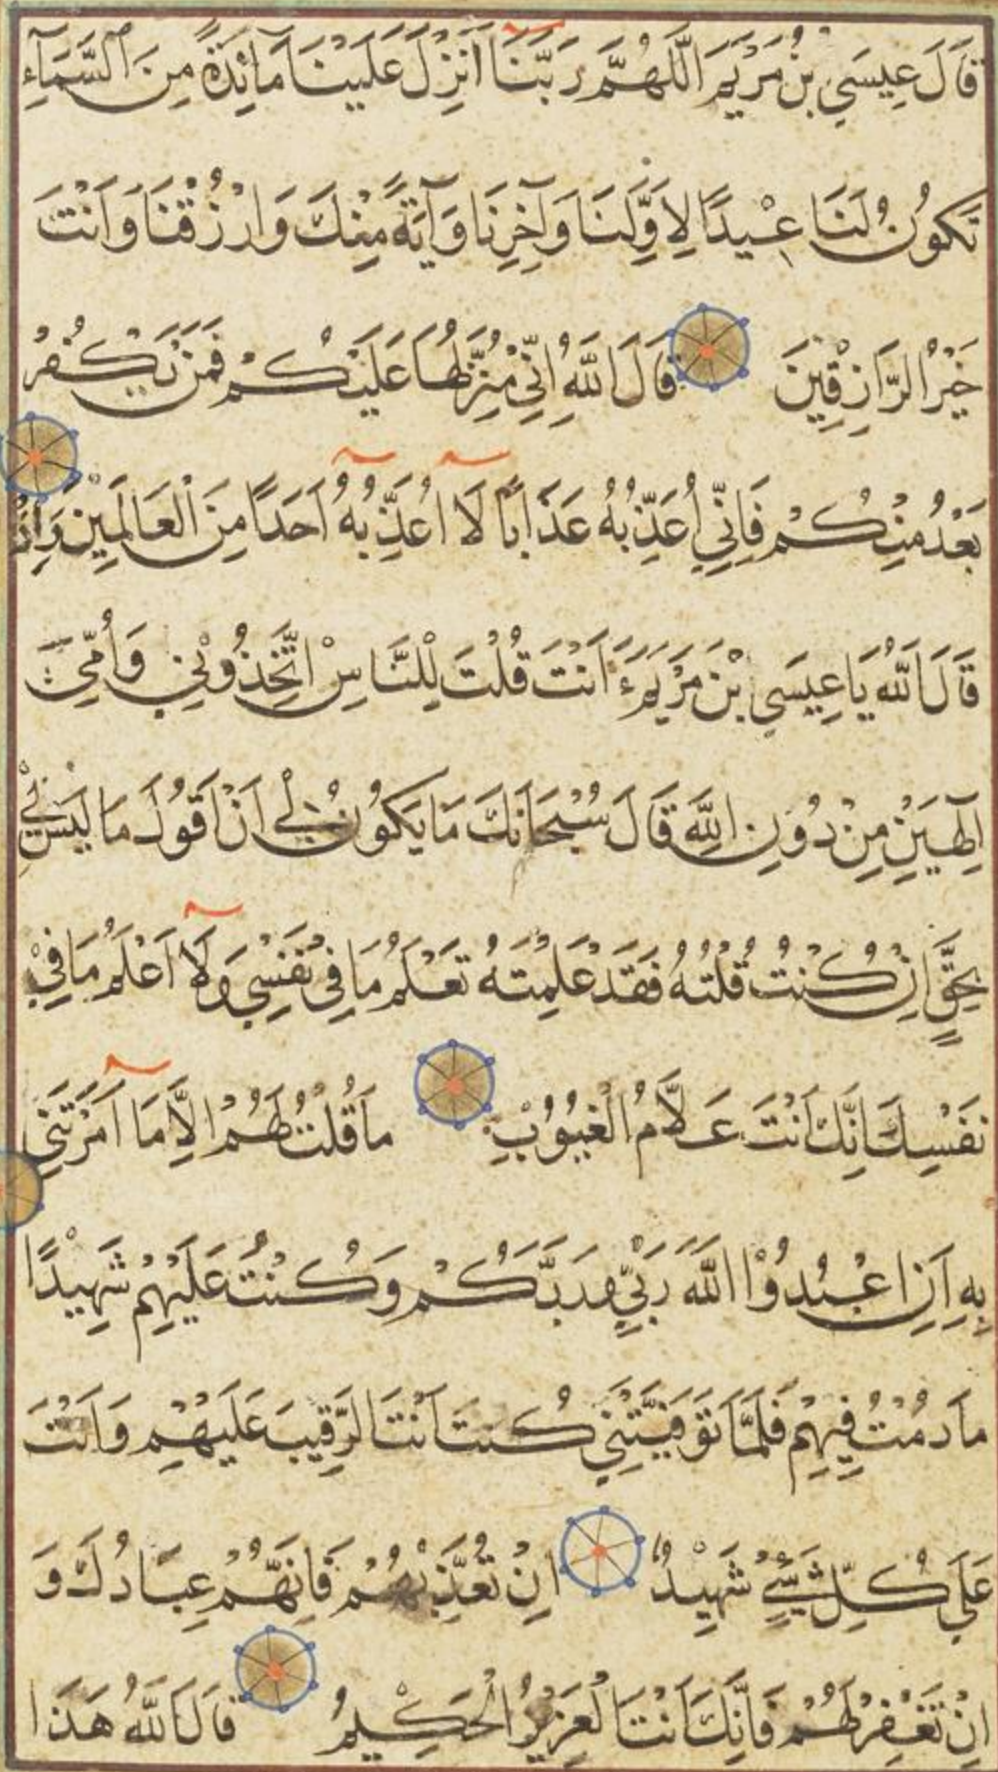 قَالَ عِيسَى بْنُ مَرْيَمَ اللَّهُمَّ رَبَّنَا أَنْزِلْ عَلَيْنَا مَائِدَةً مِنَ السَّمَاءِ
تَكُونُ لَنَا عِيْدًا لِاَوَّلِنَا وَآخِرِنَا وَآيَةً مِنْكَ وَارْزُقْنَا وَاَنْتَ
خَيْرُ الرَّازِقِيْنَ قَالَ اللَّهُ اِنِّي مُنَزِّلُهَا عَلَيْكُمْ فَمَنْ يَكْفُرْ
بَعْدُ مِنْكُمْ فَاِنِّي اُعَذِّبُهُ عَذَابًا لَا اُعَذِّبُهُ اَحَدًا مِنَ الْعَالَمِيْنَ وَاِذْ
قَالَ اللَّهُ يَا عِيسَى بْنَ مَرْيَمَ ءَاَنْتَ قُلْتَ لِلنَّاسِ اتَّخِذُوْنِي وَاُمِّيَ
اِلَهَيْنِ مِنْ دُوْنِ اللَّهِ قَالَ سُبْحَانَكَ مَا يَكُوْنُ لِي اَنْ اَقُوْلَ مَا لَيْسَ لِي
بِحَقٍّ اِنْ كُنْتُ قُلْتُهُ فَقَدْ عَلِمْتَهُ تَعْلَمُ مَا فِي نَفْسِي وَلَا اَعْلَمُ مَا فِيْ
نَفْسِكَ اِنَّكَ اَنْتَ عَلَّامُ الْغُيُوْبِ مَا قُلْتُ لَهُمْ اِلَّا مَا اَمَرْتَنِي
بِهِ اَنِ اعْبُدُوْا اللَّهَ رَبِّي وَرَبَّكُمْ وَكُنْتُ عَلَيْهِمْ شَهِيْدًا
مَا دُمْتُ فِيْهِمْ فَلَمَّا تَوَفَّيْتَنِي كُنْتَ اَنْتَ الرَّقِيْبَ عَلَيْهِمْ وَاَنْتَ
عَلَى كُلِّ شَيْءٍ شَهِيْدٌ اِنْ تُعَذِّبْهُمْ فَاِنَّهُمْ عِبَادُكَ وَ
اِنْ تَغْفِرْ لَهُمْ فَاِنَّكَ اَنْتَ الْعَزِيْزُ الْحَكِيْمُ قَالَ اللَّهُ هَذَا